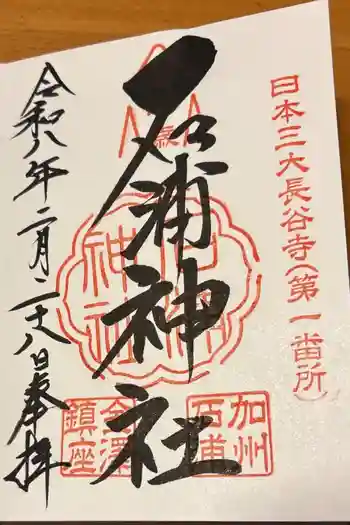 日本三大長谷寺(第一番所)
石浦神社
石浦神社
加州
石浦
金澤
鎮座
令和八年二月二十八日奉拝